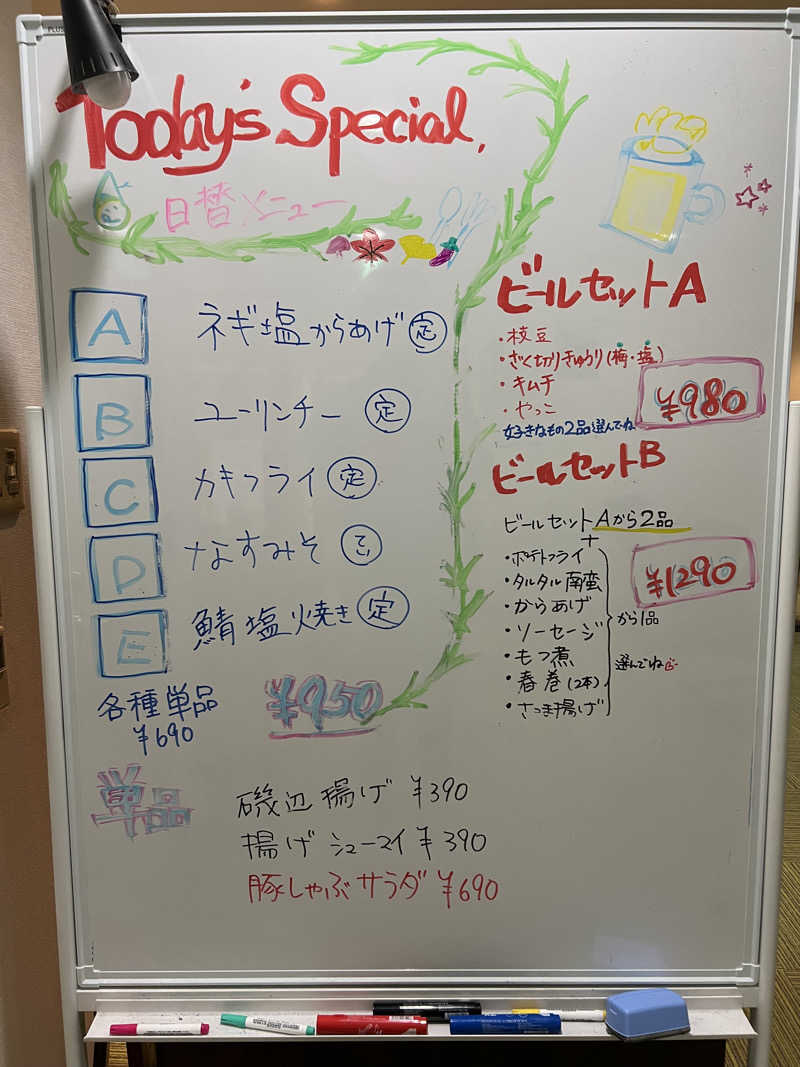 PLUS
Today's Special,
日替メニュー
A ネギ塩からあげ 定
B ユーリンチー 定
C カキフライ 定
D なすみそ てい
E 鯖塩焼き 定
各種単品
¥690
¥950
ビールセットA
・枝豆
・ざく切りきゅうり(梅・塩)
・キムチ
・やっこ
好きなもの2品選んでね
¥980
ビールセットB
ビールセットAから2品
+
・ポテトフライ
・タルタル南蛮
・からあげ
・ソーセージ
・もつ煮
・春巻(2本)
・さつま揚げ
から1品
選んでね
¥1290
単品
磯辺揚げ ¥390
揚げシューマイ ¥390
豚しゃぶサラダ ¥690